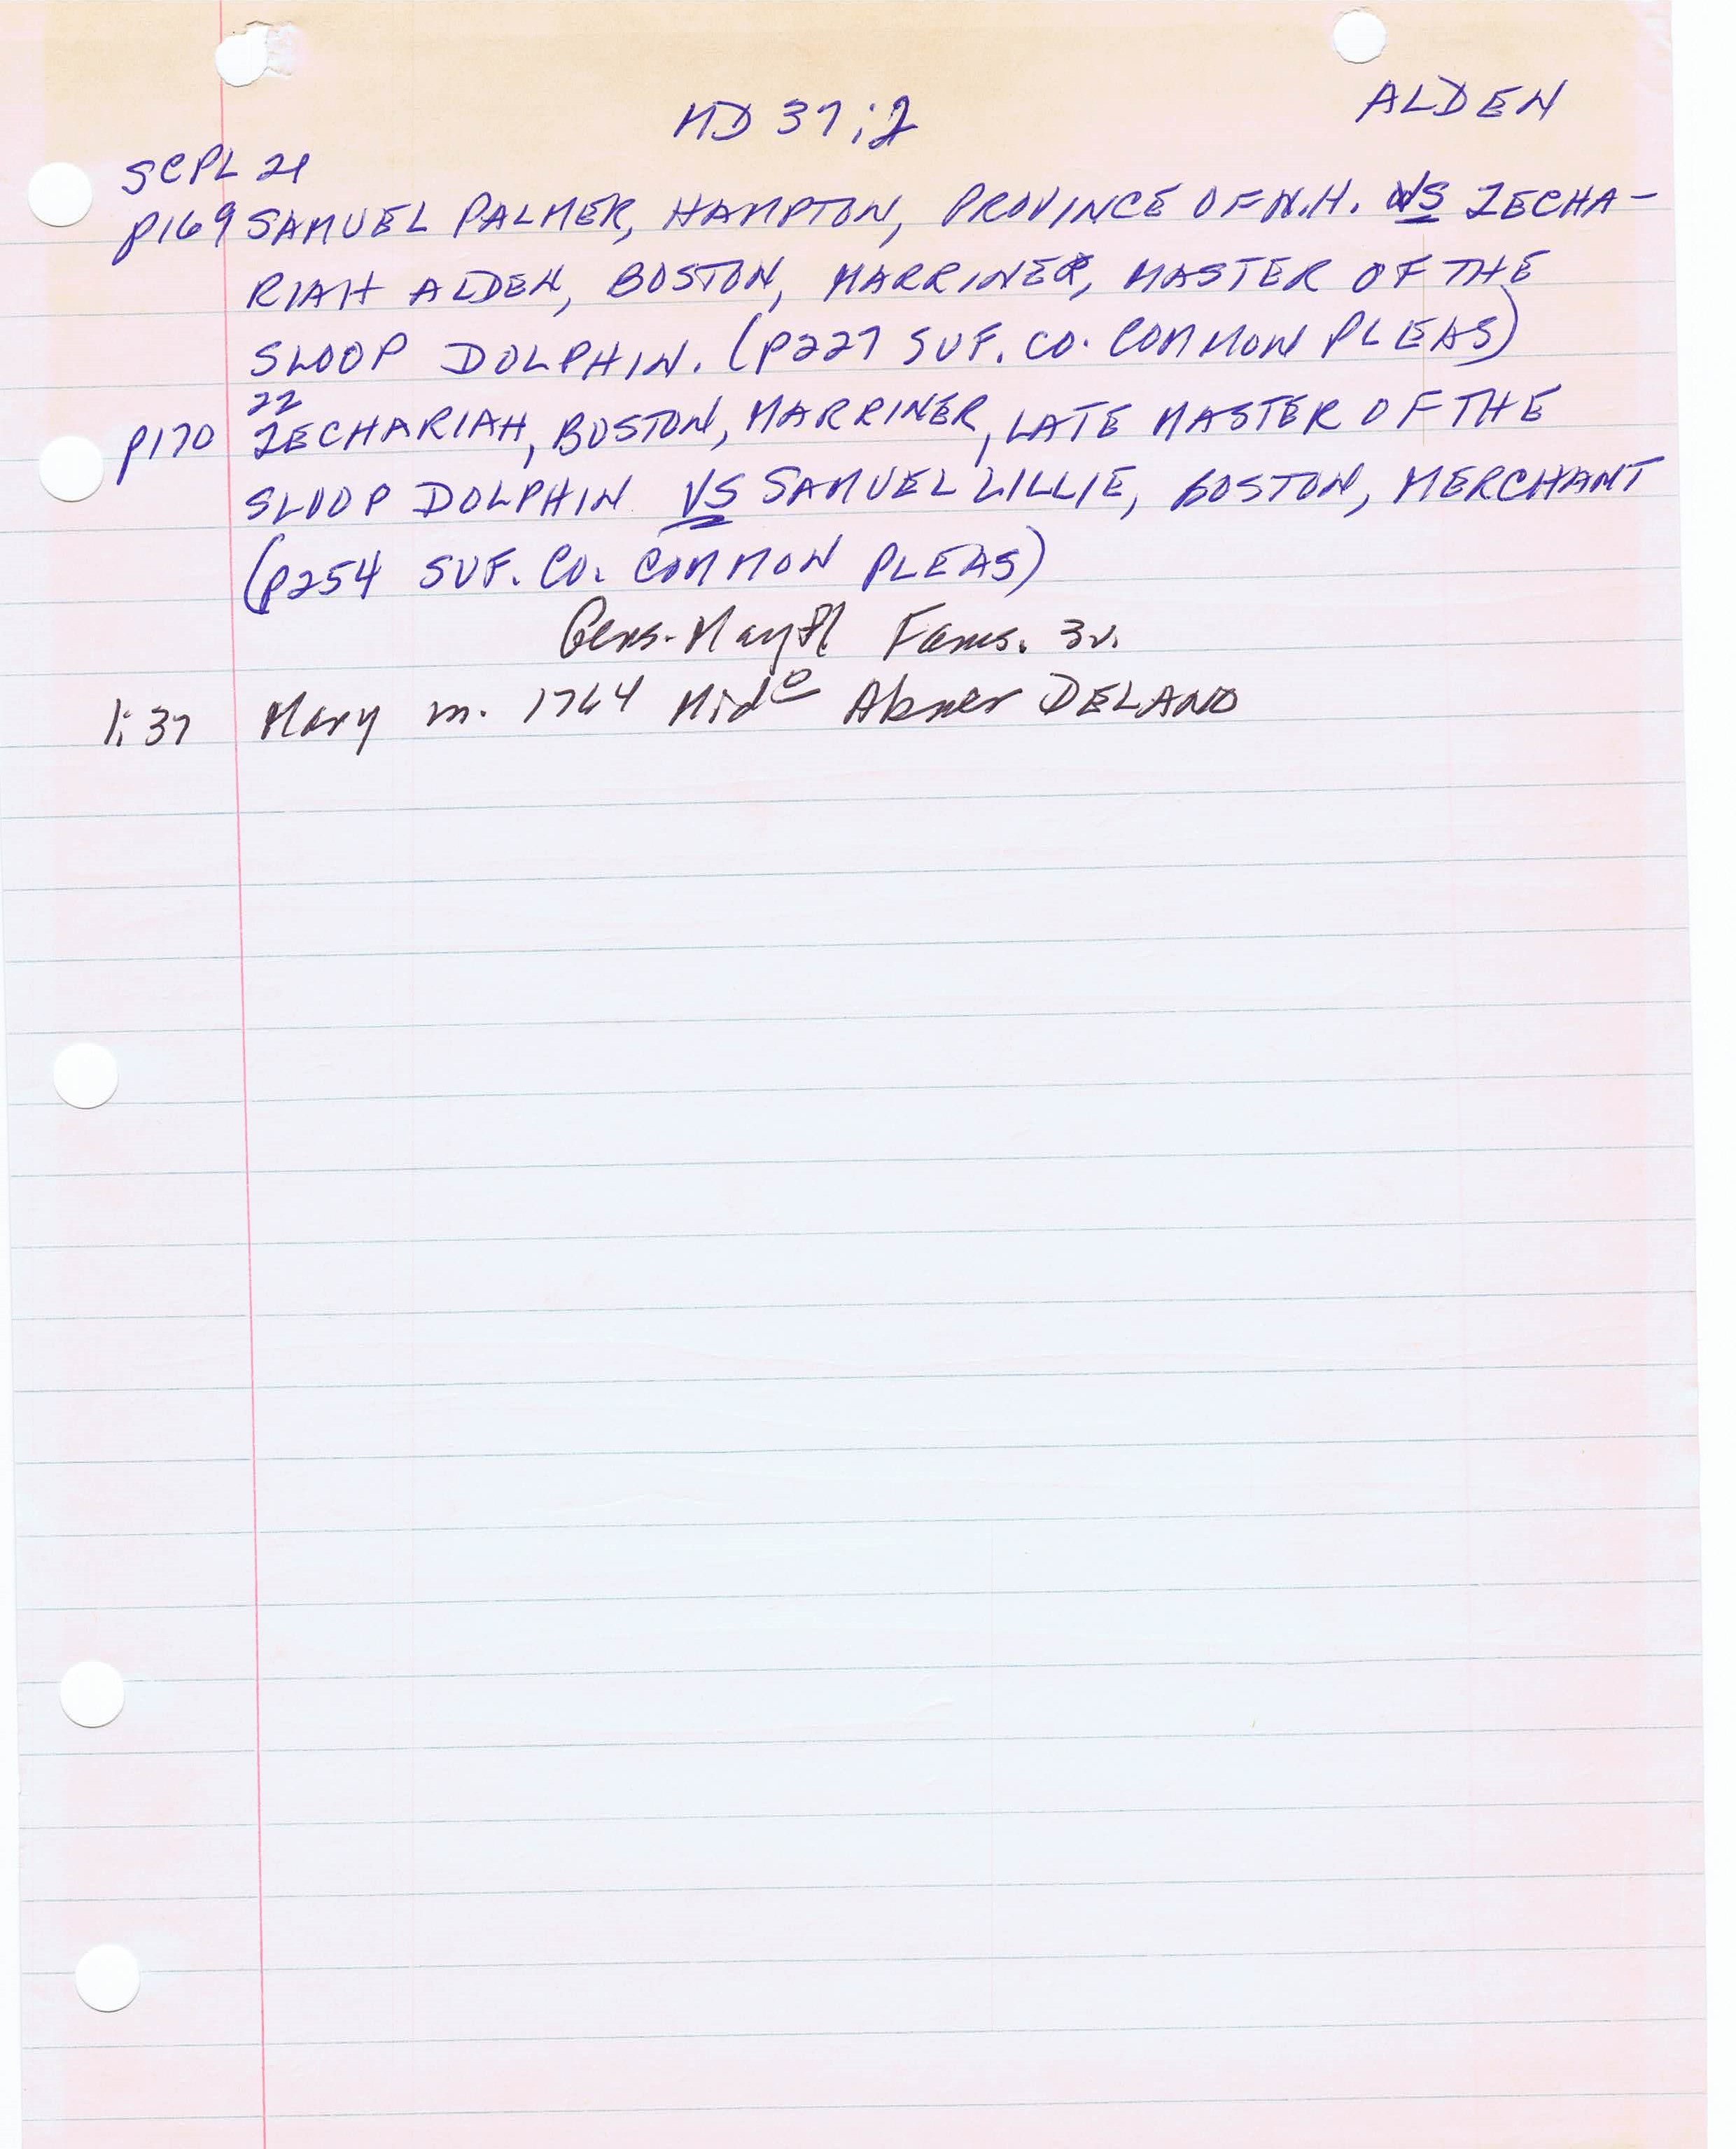 ALDEN
MD 37:2
SCPL 21
p169 SAMUEL PALMER, HAMPTON, PROVINCE OF N.H. VS ZECHA-
RIAH ALDEN, BOSTON, MARRINER, MASTER OF THE
SLOOP DOLPHIN. (P227 SUF. CO. COMMON PLEAS)
22
p170 ZECHARIAH, BOSTON, MARRINER, LATE MASTER OF THE
SLOOP DOLPHIN VS SAMUEL LILLIE, BOSTON, MERCHANT
(P254 SUF. CO. COMMON PLEAS)
Gens-Mayfl Fams. 3v.
1:37 Mary m. 1764 Mid⁰ Abner DELANO